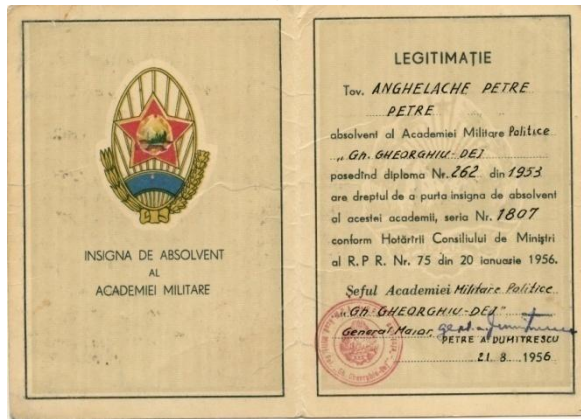 INSIGNA DE ABSOLVENT
AL
ACADEMIEI MILITARE
LEGITIMAȚIE
Tov. ANGHELACHE PETRE
PETRE
absolvent al Academiei Militare Politice
„Gh. GHEORGHIU-DEJ
posedînd diploma Nr. 262 din 1953
are dreptul de a purta insigna de absolvent
al acestei academii, seria Nr. 1807
conform Hotărîrii Consiliului de Miniștri
al R.P.R. Nr. 75 din 20 ianuarie 1956.
Șeful Academiei Militare Politice
„Gh. GHEORGHIU-DEJ"
General Maior,
PETRE A. DUMITRESCU
21.8.1956